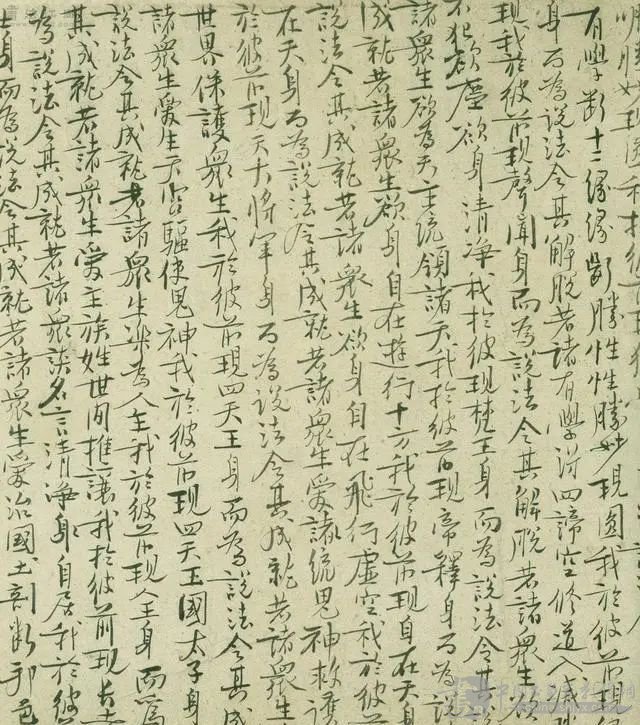 明勝妙現圓我於彼前現
有學斷十二緣緣斷勝性性勝妙現圓我於彼前現緣
身而為說法令其解脫若諸有學得四諦空修道入滅
現我於彼前現聲聞身而為說法令其解脫若諸眾生欲
不犯欲塵欲身清淨我於彼現梵王身而為說法令其
諸眾生欲為天主統領諸天我於彼前現帝釋身而為說
成就若諸眾生欲身自在遊行十方我於彼前現自在天身
說法令其成就若諸眾生欲身自在飛行虛空我於彼
在天身而為說法令其成就若諸眾生愛諸統鬼神救護
於彼前現天大將軍身而為說法令其成就若諸眾生
世界保護眾生我於彼前現四天王身而為說法令其成
諸眾生愛生天宮驅使鬼神我於彼前現四天王國太子身
說法令其成就若諸眾生樂為人主我於彼前現人王身而為
其成就若諸眾生愛主族姓世間推讓我於彼前現長者
為說法令其成就若諸眾談名言清淨身自居我於彼
士身而為說法令其成就若諸眾生愛治國土剖斷邦邑